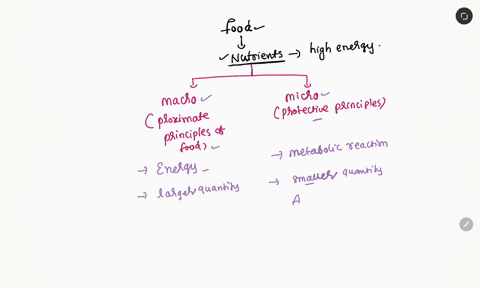 food
Nutrients → high energy.
macro
(ploximate
principles of
food)
→ Energy
→ larger quantity
micro
(protective principles)
→ metabolic reaction
→ smaller quantity
A